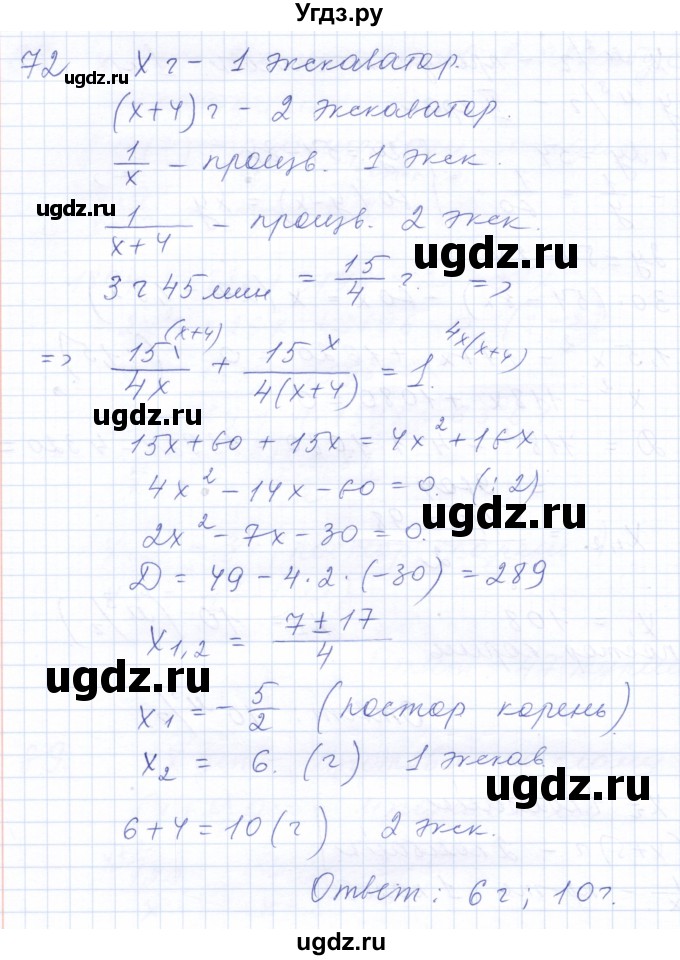 Угдз.ру
72 x г - 1 экскаватор.
ugdz.ru
(x+4) г - 2 экскаватор.
1/x - произв. 1 экск.
ugdz.ru
1/(x+4) - произв. 2 экск.
ugdz.ru
3 г 45 мин = 15/4 г. =>
=> 15/4x \(x+4) + 15/4(x+4) \x = 1. \4x(x+4)
ugdz.ru
15x+60+15x = 4x²+16x
4x² - 14x - 60 = 0. (:2)
ugdz.ru
2x² - 7x - 30 = 0.
Д = 49 - 4·2·(-30) = 289
x1,2 = (7±17)/4
ugdz.ru
x1 = -5/2 (постор корень)
x2 = 6. (г) 1 экскав.
ugdz.ru
6+4 = 10 (г) 2 экск.
Ответ: 6 г; 10 г.
ugdz.ru